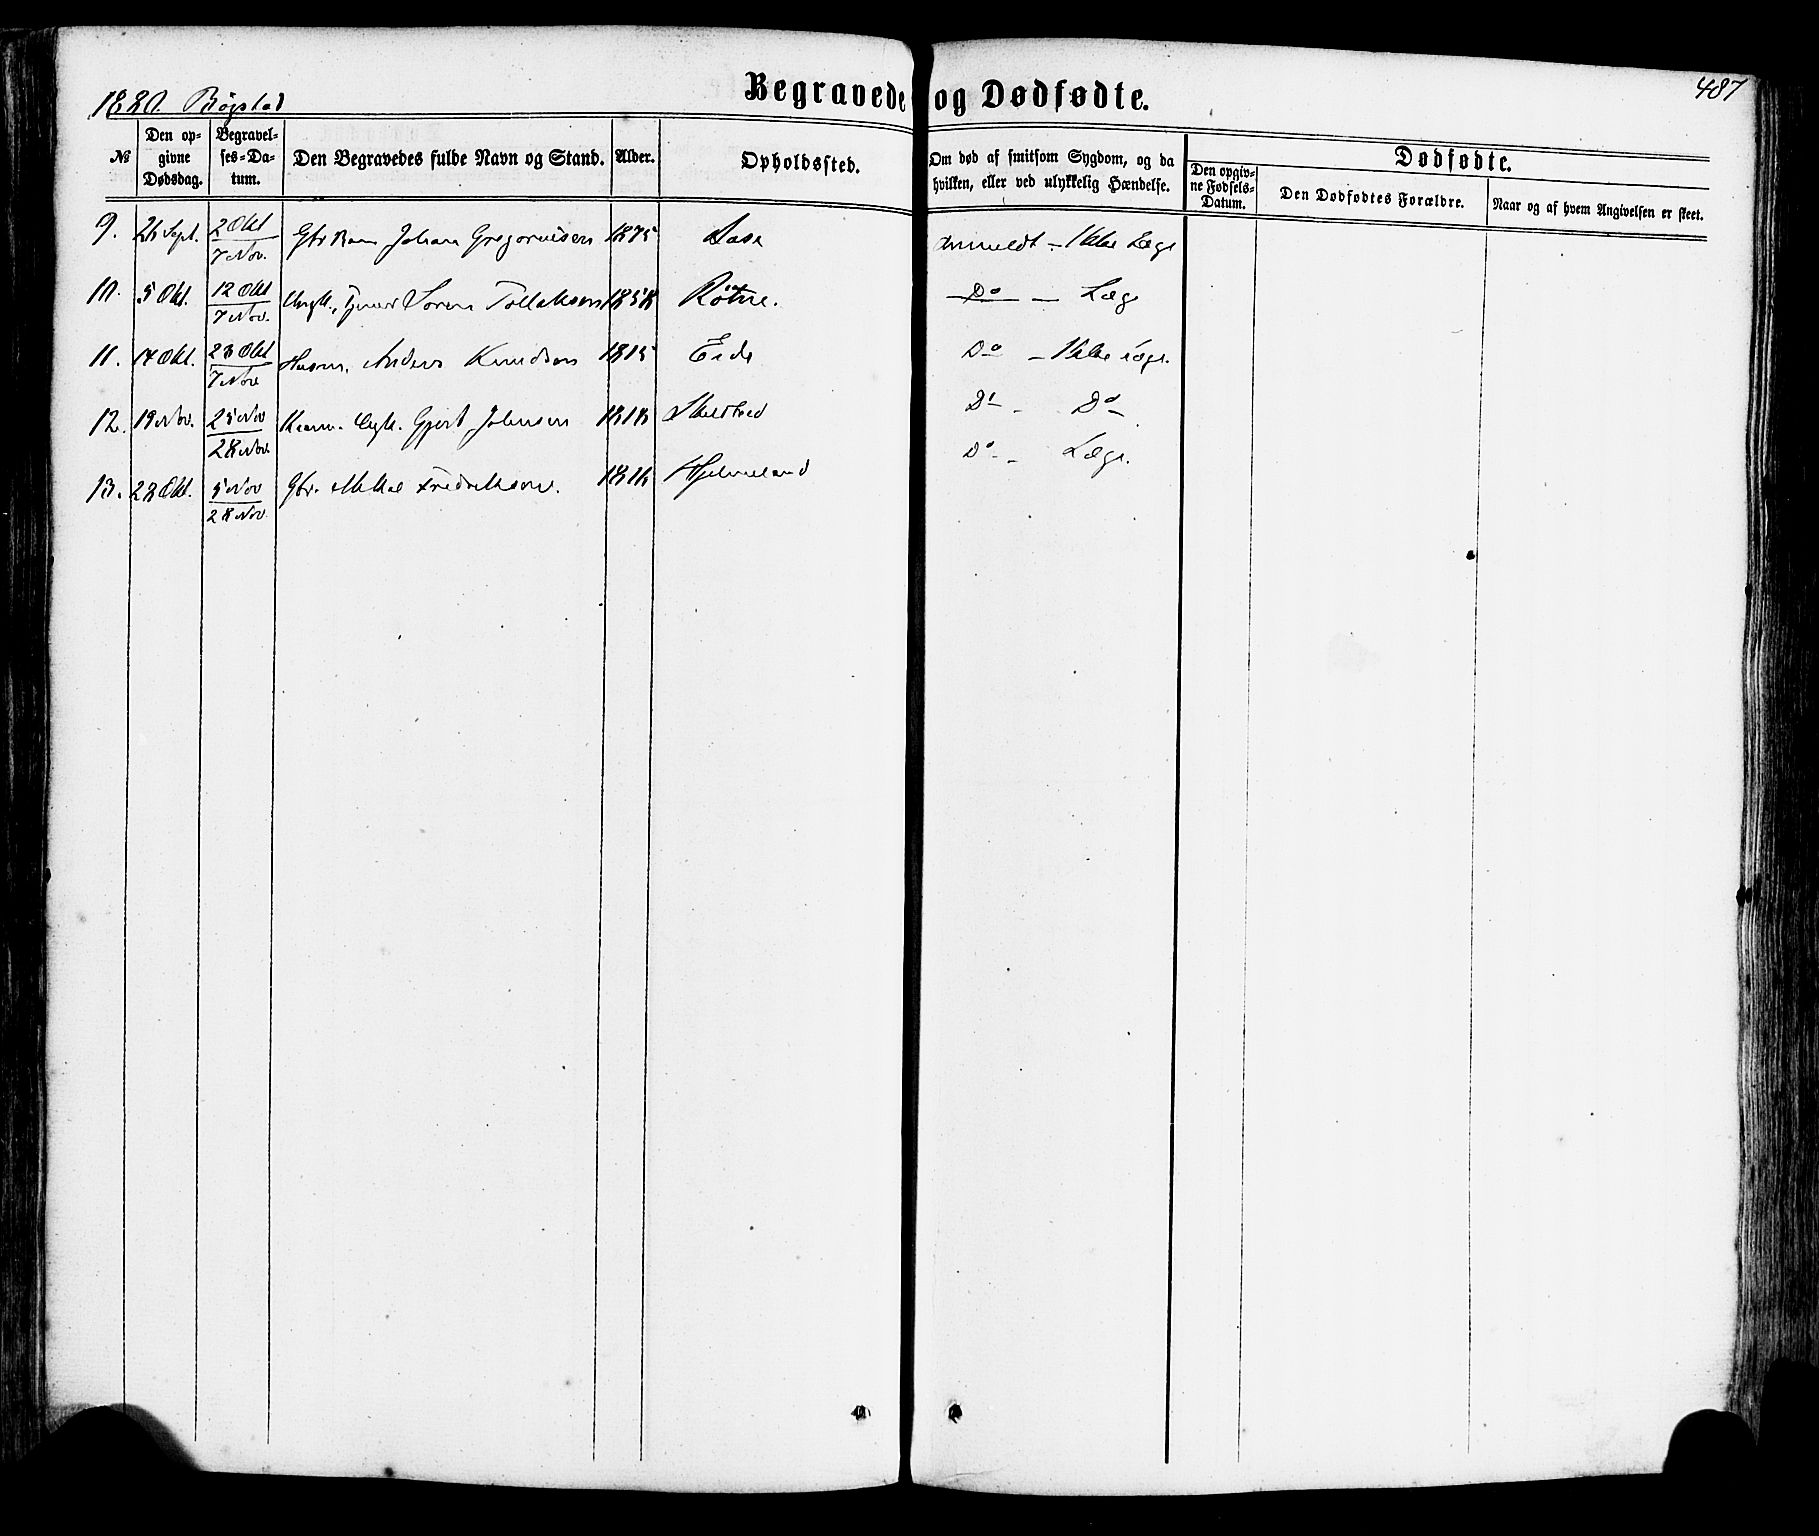 1880. Bøgstad
Begravede og Dødfødte.
487
№
Den opgivne Dødsdag.
Begravelses-Datum.
Den Begravedes fulde Navn og Stand.
Alder.
Opholdssted.
Om død af smitsom Sygdom, og da hvilken, eller ved ulykkelig Hændelse.
Dødfødte.
Den opgivne Fødsels-Datum.
Den Dødfødtes Forældre.
Naar og af hvem Angivelsen er skeet.
9. 26 Sept. 2 Okt / 7 Nov. Gbr Barn Johan Gregoriusen 1875 Anmeldt - Ikke Læge
10. 5 Okt. 12 Okt / 7 Nov. Ungk. Søren Tollaksen 1858 Do - Læge
11. 14 Okt. 23 Okt / 7 Nov Husm. Anders Knudsen 1815 Eide Do - Ikke Læge.
12. 19 Nov. 25 Nov / 28 Nov. Gjert Johnsen 1818 Do - Do
13. 28 Okt. 5 Nov / 28 Nov. Gbr. Mikal Fredriksen. 1816 Hjelmeland Do - Læge.